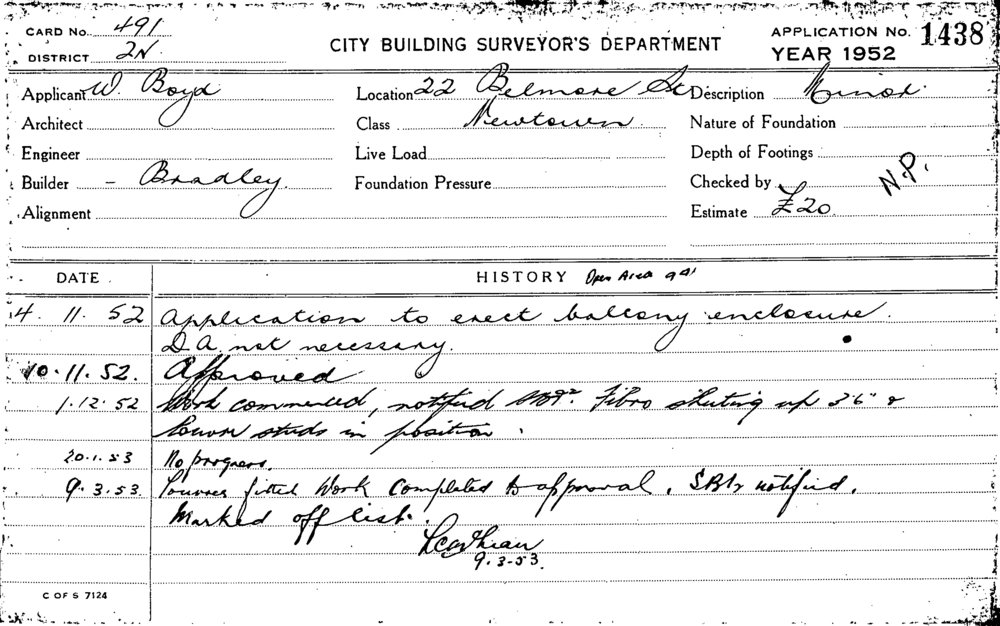 CARD No. 491
DISTRICT 2N
CITY BUILDING SURVEYOR'S DEPARTMENT
APPLICATION No. 1438
YEAR 1952
Applicant W. Boyd
Location 22 Belmore St
Description Minor.
Architect
Class Newtown.
Nature of Foundation
Engineer
Live Load
Depth of Footings
Builder - Bradley.
Foundation Pressure
Checked by N.P.
Alignment
Estimate £20.
DATE
HISTORY Open Area 991
4. 11. 52 Application to erect balcony enclosure.
D A not necessary.
10.11.52. Approved
1.12.52 Work commenced, notified Fibro sheeting up 3'6" &
louvre studs in position.
20.1.53 No progress.
9.3.53. Louvres fitted Work Completed to approval. notified.
Marked off list.
9.3.53.
C OF S 7124